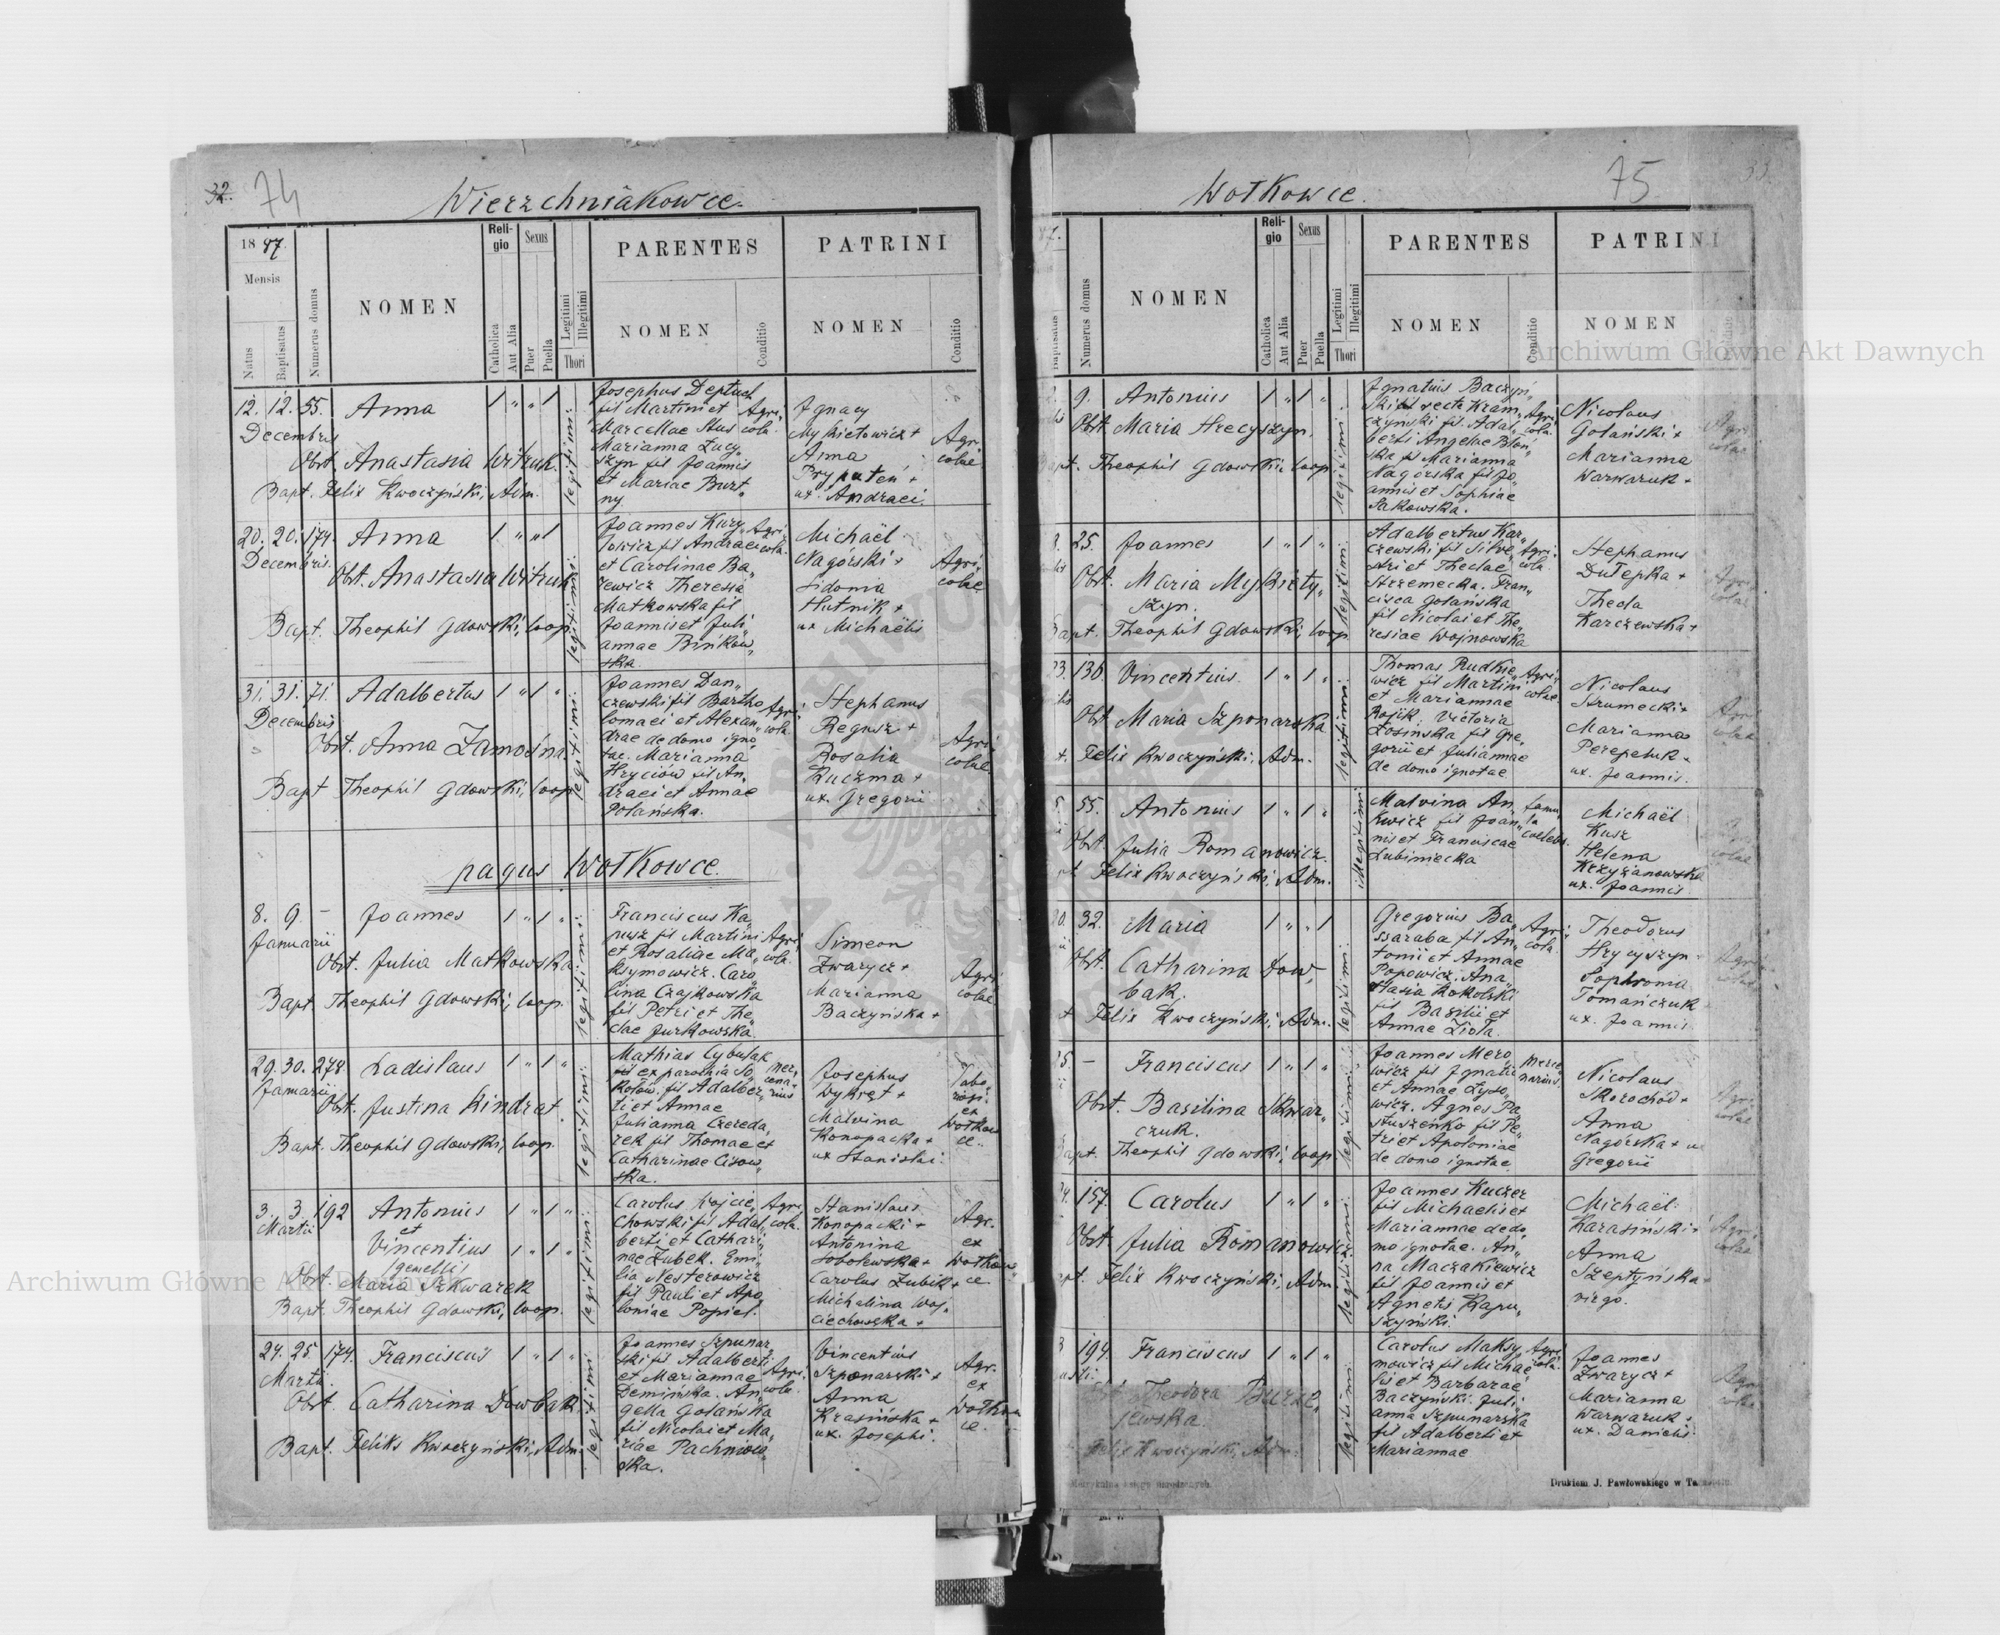 32. 74
Wierzchniakowce.
1887.
Mensis
Natus
Baptisatus
Numerus domus
NOMEN
Religio
Catholica
Aut Alia
Sexus
Puer
Puella
Legitimi
Illegitimi
Thori
PARENTES
NOMEN
Conditio
PATRINI
NOMEN
Conditio
12. 12. 55. Anna 1 " " 1
Decembris
Obst. Anastasia Witruk
Bapt. Felix Kwoczyński, Adm.
legitimi
Josephus Deptuch
fil Martini et Agri,
Marcellae Hus cola.
Marianna Łucy,
szyn fil Joannis
et Mariae Burt,
ny.
Ignacy
Mykietowicz +
Anna
Pryputeń +
ux. Andraei.
Agri,
colae
20. 20. 174. Anna 1 " " 1
Decembris.
Obst. Anastasia Witruk
Bapt. Theophil Gdowski, Coop.
legitimi
Joannes Kury, Agri,
łowicz fil Andraei cola.
et Carolinae Ba,
rewicz Theresia
Matkowska fil
Joannis et Juli,
annae Bińkow,
ska.
Michaël
Nagórski +
Sidonia
Hutnik +
ux Michaëlis
Agri,
colae
31. 31. 71. Adalbertus 1 " 1 "
Decembris
Obst. Anna Zamośna.
Bapt Theophil Gdowski, Coop.
legitimi
Joannes Dan,
czewski fil Bartho Agri,
lomaei et Alexan, cola.
drae de domo igno,
tae. Marianna
Hryciów fil An,
draei et Annae
Polańska.
Stephanus
Regusz +
Rosalia
Kuczma +
ux. Gregorii
Agri,
colae
pagus Wołkowce.
8. 9. – Joannes 1 " 1 "
Januarii
Obst. Julia Matkowska
Bapt. Theophil Gdowski, Coop.
legitimi
Franciscus Ka,
pusz fil Martini Agri,
et Rosaliae Ma, cola.
ksymowicz. Caro,
lina Czajkowska
fil Petri et The,
clae Jurkowska.
Simeon
Zwarycz +
Marianna
Baczyńska +
Agri,
colae
29. 30. 278 Ladislaus 1 " 1 "
Januarii
Obst. Justina Kindrat.
Bapt. Theophil Gdowski, Coop.
legitimi
Mathias Cybulak
ex parochia So, mer,
kołow. fil Adalber, cena,
ti et Annae rius
Julianna Czereda,
rek fil Thomae et
Catharinae Cisow,
ska.
Josephus
Wykręt +
Malvina
Konopacka +
ux Stanislai.
ex
Wołkow
ce.
3. 3. 192 Antonius 1 " 1 "
Martii
et
Vincentius 1 " 1 "
(gemelli)
Obst. Maria Szkwarek
Bapt. Theophil Gdowski, Coop.
legitimi
Carolus Wojcie, Agri,
chowski fil Adal, cola.
berti et Cathari,
nae Zubek. Emi,
lia Nesterowicz
fil Pauli et Apo,
loniae Popiel.
Stanislaus
Konopacki +
Antonina
Sobolewska +
Carolus Zubik +
Michalina Woj,
ciechowska +
Agr.
ex
Wołkow
ce
24. 25 174. Franciscus 1 " 1 "
Martii.
Obst. Catharina Dowbak.
Bapt. Feliks Kwoczyński, Adm.
legitimi
Joannes Szpunar,
ski fil Adalberti
et Mariannae Agri,
Demińska. An, cola.
gella Golańska
fil Nicolai et Ma,
riae Pachniow,
ska.
Vincentius
Szponarski +
Anna
Krasińska +
ux. Josephi.
Agr.
ex
Wołkow
ce.
Wołkowce.
75
87.
Baptisatus
Numerus domus
NOMEN
Religio
Catholica
Aut Alia
Sexus
Puer
Puella
Legitimi
Illegitimi
Thori
PARENTES
NOMEN
Conditio
PATRINI
NOMEN
9. Antonius 1 " 1 "
Obst. Maria Hrecyszyn.
Theophil Gdowski, Coop
legitimi
Ignatius Baczyń,
ski recte Kram,
czyński fil. Adal, Agri,
berti Angelae Błoń, cola.
ska fil Marianna
Nagórska fil Jo,
annis et Sophiae
Sakowska.
Nicolaus
Golański +
Marianna
Warwaruk +
Agri,
colae
25. Joannes 1 " 1 "
Obst. Maria Mykiety,
szyn.
Theophil Gdowski, Coop.
legitimi
Adalbertus Kar,
czewski fil Silve, Agri,
stri et Theclae cola.
Strzemecka. Fran,
cisca Golańska
fil Nicolai et The,
resiae Wojnowska
Stephanus
Dulepka +
Thecla
Karczewska +
Agri,
colae
23. 136. Vincentius. 1 " 1 "
Obst Maria Szponarska
Felix Kwoczyński, Adm.
legitimi
Thomas Rudkie, Agri,
wicz fil Martini colae.
et Mariannae
Rojik. Victoria
Łosińska fil Gre,
gorii et Juliannae
de domo ignotae
Nicolaus
Strumecki +
Marianna
Perepeluk +
ux. Joannis.
55. Antonius 1 " 1 "
Obst. Julia Romanowicz.
Felix Kwoczyński, Adm.
illegitimi
Malvina An, famu,
kwicz fil Joan, la
nis et Franciscae coelebs.
Lubiniecka
Michaël
Kusz
Helena
Krzyżanowska
ux. Joannis
32. Maria 1 " " 1
Obst. Catharina Dow,
bak.
Felix Kwoczyński, Adm.
legitimi
Gregorius Ba, Agri,
ssaraba fil An, cola.
tonii et Annae
Popowicz. Ana,
stasia Kokolski
fil Basilii et
Annae Zioła.
Theodorus
Hrycyszyn
Sophronia
Tomańczuk
ux. Joannis.
– Franciscus 1 " 1 "
Obst. Basilina Skwar,
czuk.
Bapt. Theophil Gdowski, Coop.
legitimi
Joannes Mero, merce,
wicz fil Ignatii narius.
et Annae Łyso,
wicz. Agnes Pa,
stuszeńko fil Pe,
tri et Apoloniae
de domo ignotae.
Nicolaus
Skorochód +
Anna
Nagórska + ux
Gregorii
157. Carolus 1 " 1 "
Obst. Julia Romanowicz
Felix Kwoczyński, Adm.
legitimi
Joannes Kuczer
fil Michaelis et
Mariannae de do,
mo ignotae. An,
na Maczakiewicz
fil Joannis et
Agnetis Kapu,
szyński.
Michaël
Karasiński +
Anna
Szeptyńska
virgo.
194. Franciscus 1 " 1 "
Obst. Theodora Burze,
jewska.
Felix Kwoczyński, Adm.
legitimi
Carolus Maksy, Agri,
mowicz fil Michae, cola.
lis et Barbarae
Baczyński. Juli,
anna Szpunarska
fil Adalberti et
Mariannae
Joannes
Zwarycz +
Marianna
Warwaruk +
ux. Danielis.
Drukiem J. Pawłowskiego w
Archiwum Główne Akt Dawnych
Archiwum Główne Akt Dawnych